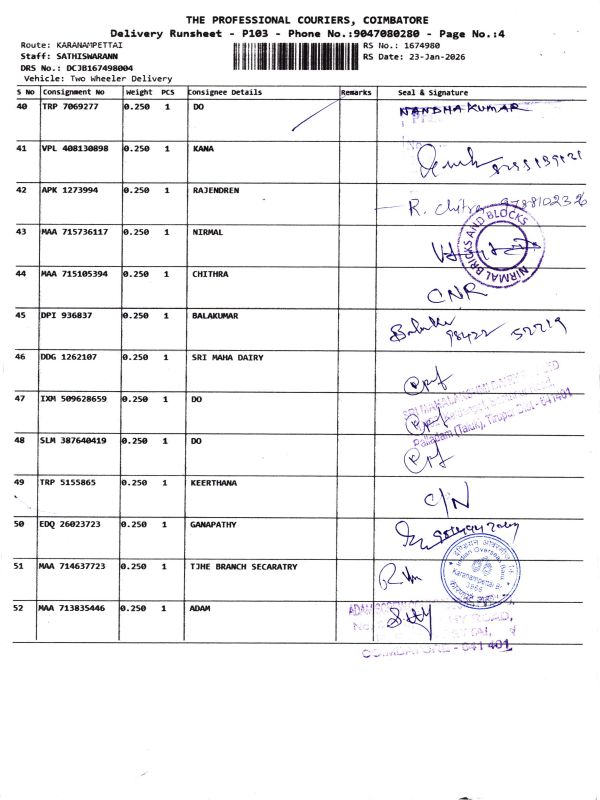 THE PROFESSIONAL COURIERS, COIMBATORE
Delivery Runsheet - P103 - Phone No.:9047080280 - Page No.:4
Route: KARANAMPETTAI
RS No.: 1674980
Staff: SATHISWARANN
RS Date: 23-Jan-2026
DRS No.: DCJB167498004
Vehicle: Two Wheeler Delivery
S No Consignment No Weight PCS Consignee Details Remarks Seal & Signature
40 TRP 7069277 0.250 1 DO NANDHA KUMAR
41 VPL 408130898 0.250 1 KANA
42 APK 1273994 0.250 1 RAJENDREN R. Chitra 9788102336
43 MAA 715736117 0.250 1 NIRMAL
NIRMAL BRICKS AND BLOCKS
44 MAA 715105394 0.250 1 CHITHRA CNR
45 DPI 936837 0.250 1 BALAKUMAR 98422 52219
46 DDG 1262107 0.250 1 SRI MAHA DAIRY
47 IXM 509628659 0.250 1 DO
Palladam (Taluk), Tirupur Dist - 641401
48 SLM 387640419 0.250 1 DO
49 TRP 5155865 0.250 1 KEERTHANA C/N
50 EDQ 26023723 0.250 1 GANAPATHY
Indian Overseas Bank
Karanampettai Br
51 MAA 714637723 0.250 1 TJHE BRANCH SECARATRY
52 MAA 713835446 0.250 1 ADAM
ADAM
ROAD,
COIMBATORE - 641 401